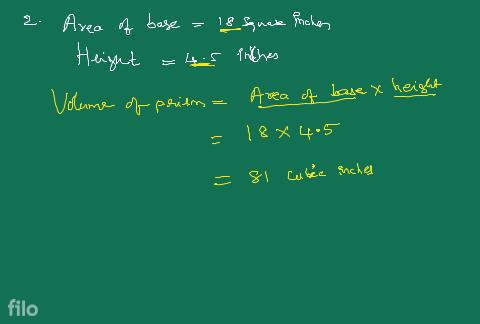 2. Area of base = 18 square inches
Height = 4.5 inches
Volume of prism = Area of base × height
= 18 × 4.5
= 81 cubic inches
filo